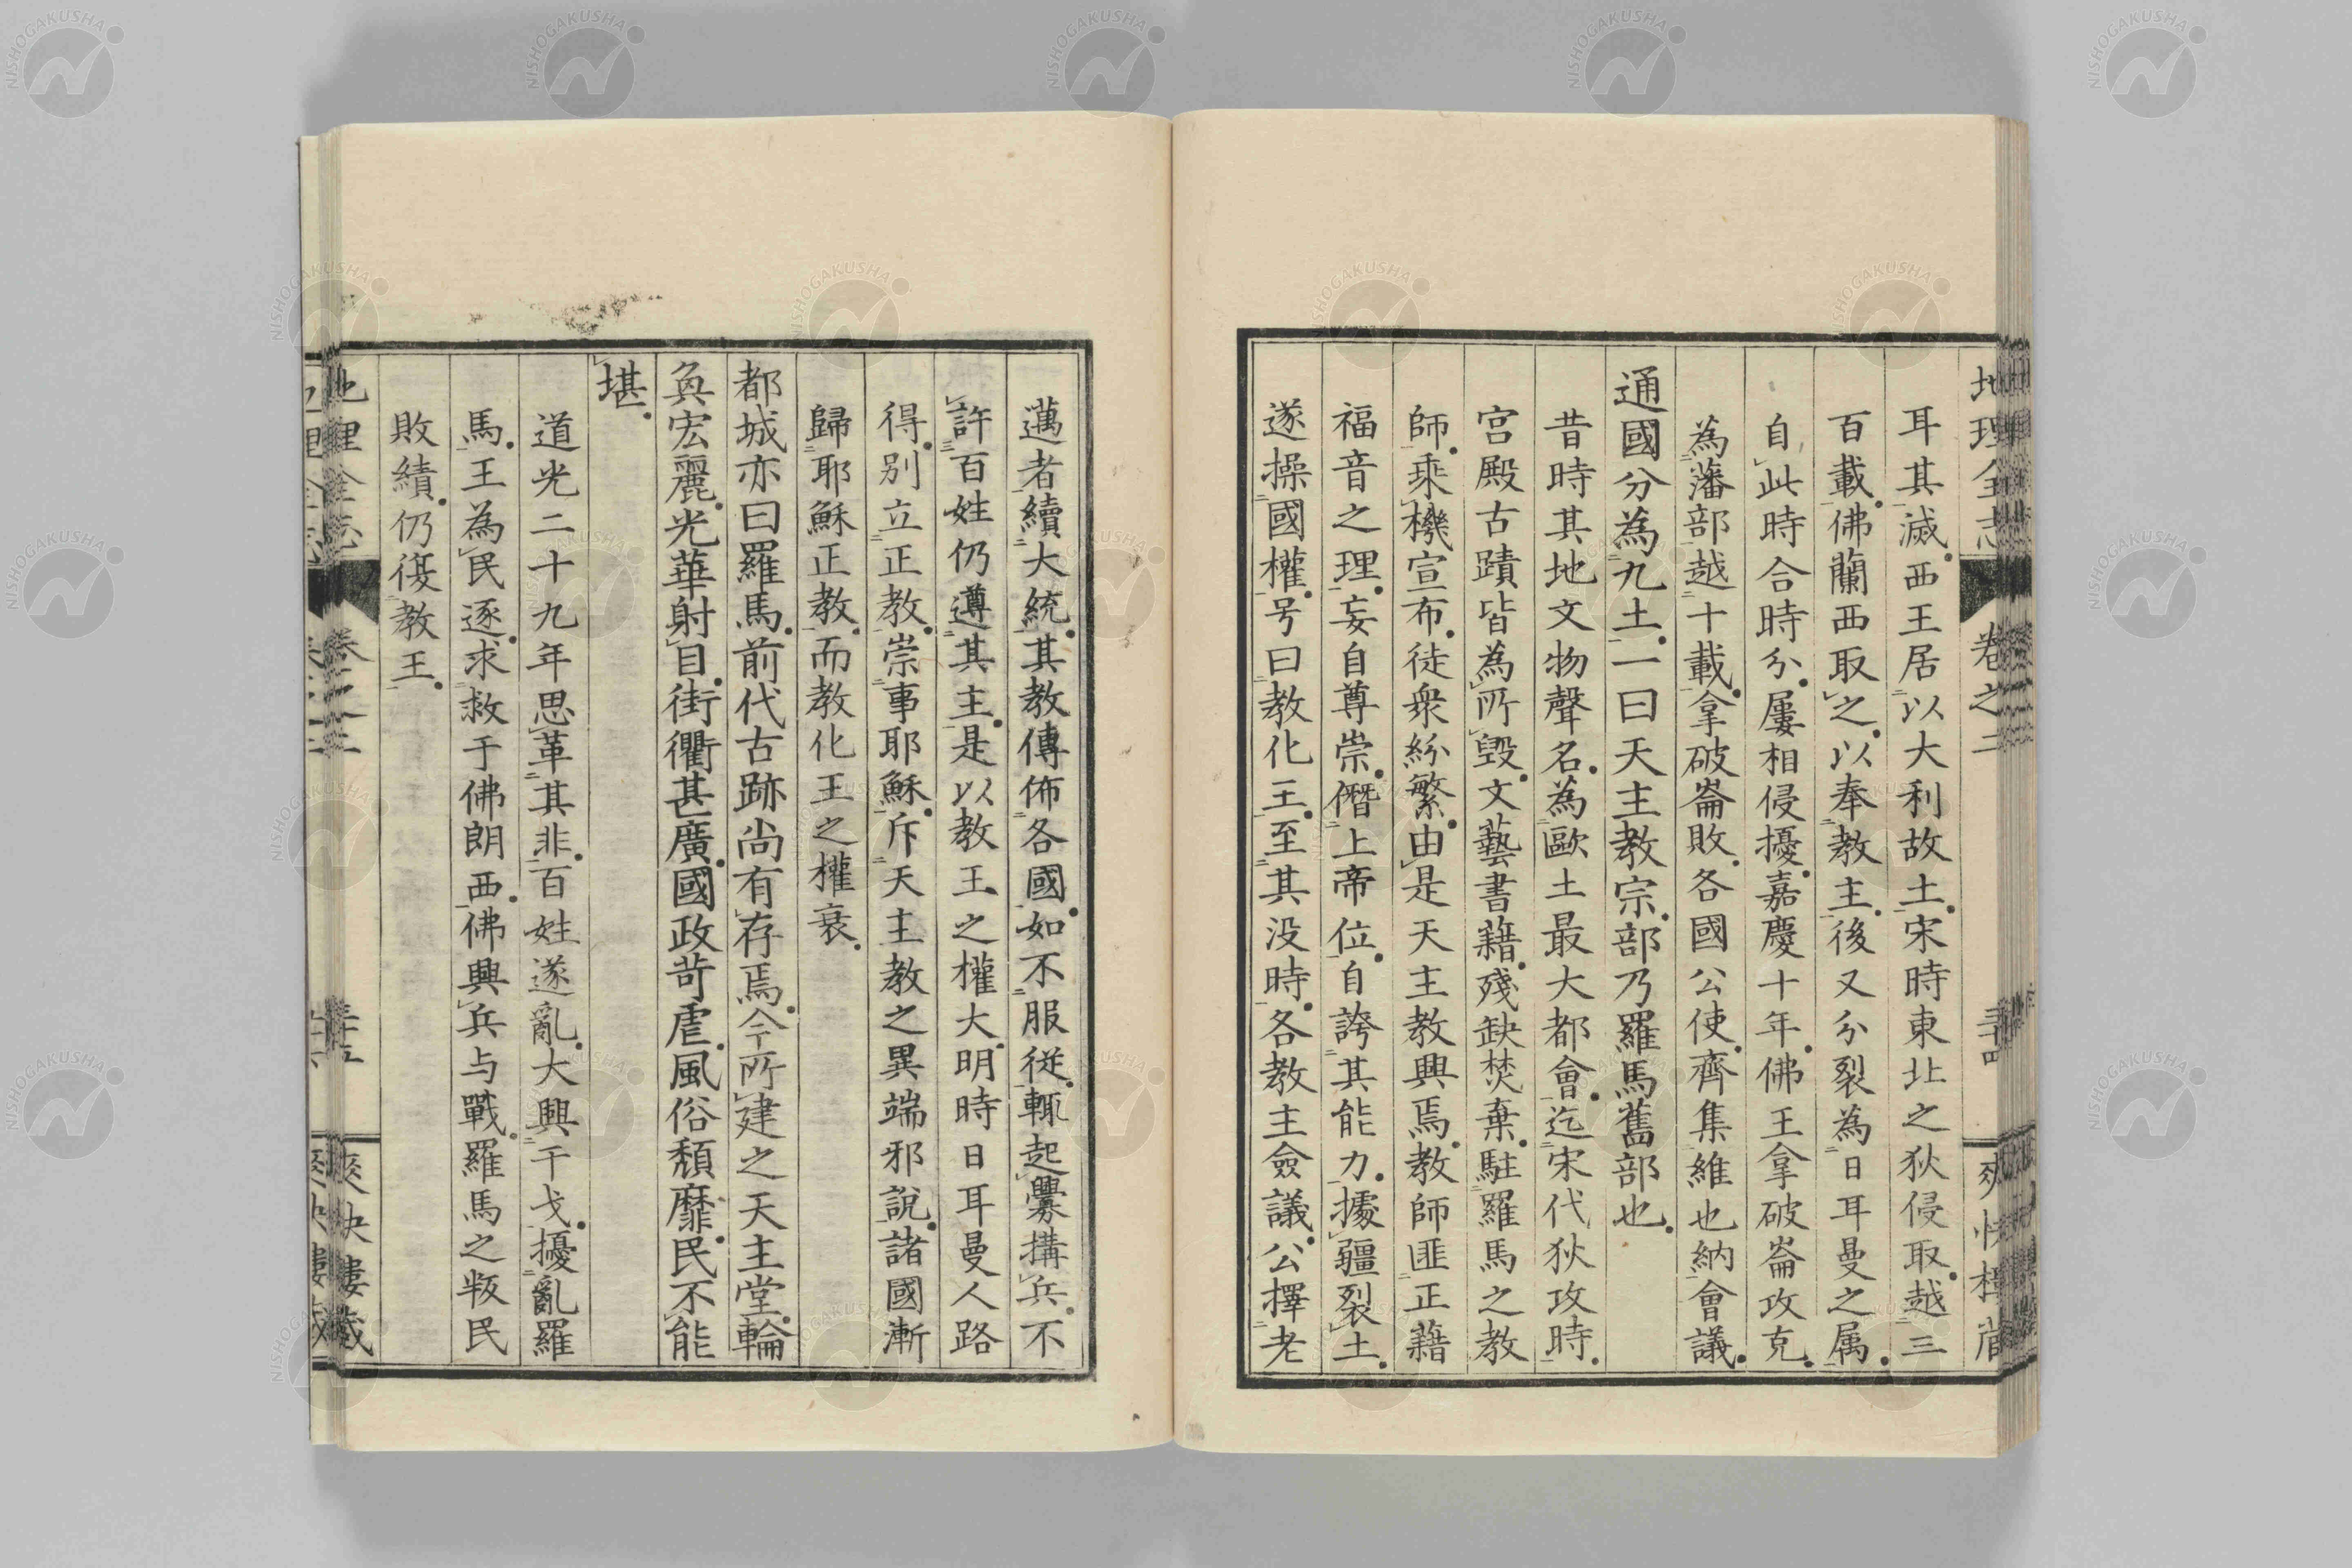 地理全志 卷之二 三十四 爽快樓蔵
耳其滅西王居以大利故土宋時東北之狄侵取越三
百載佛蘭西取之以奉教主後又分裂為日耳曼之属
自此時合時分屢相侵擾嘉慶十年佛王拿破崙攻克
為藩部越十載拿破崙敗各國公使齊集維也納會議
通國分為九土一曰天主教宗部乃羅馬舊部也
昔時其地文物聲名為歐土最大都會迄宋代狄攻時
宮殿古蹟皆為所毀文藝書籍殘缺焚棄駐羅馬之教
師乘機宣布徒衆紛繁由是天主教興焉教師匪正藉
福音之理妄自尊崇僭上帝位自誇其能力據疆裂土
遂操國權号曰教化王至其没時各教主僉議公擇老
邁者續大統其教傳佈各國如不服従輒起釁搆兵不
許百姓仍遵其主是以教王之權大明時日耳曼人路
得別立正教崇事耶穌斥天主教之異端邪說諸國漸
歸耶穌正教而教化王之權衰
都城亦曰羅馬前代古跡尚有存焉今所建之天主堂輪
奐宏麗光華射目街衢甚廣國政苛虐風俗頹靡民不能
堪
道光二十九年思革其非百姓遂亂大興干戈擾亂羅
馬王為民逐求救于佛朗西佛興兵与戰羅馬之叛民
敗績仍復教王
地理全志 卷之二 三十五 爽快樓蔵
NISHOGAKUSHA